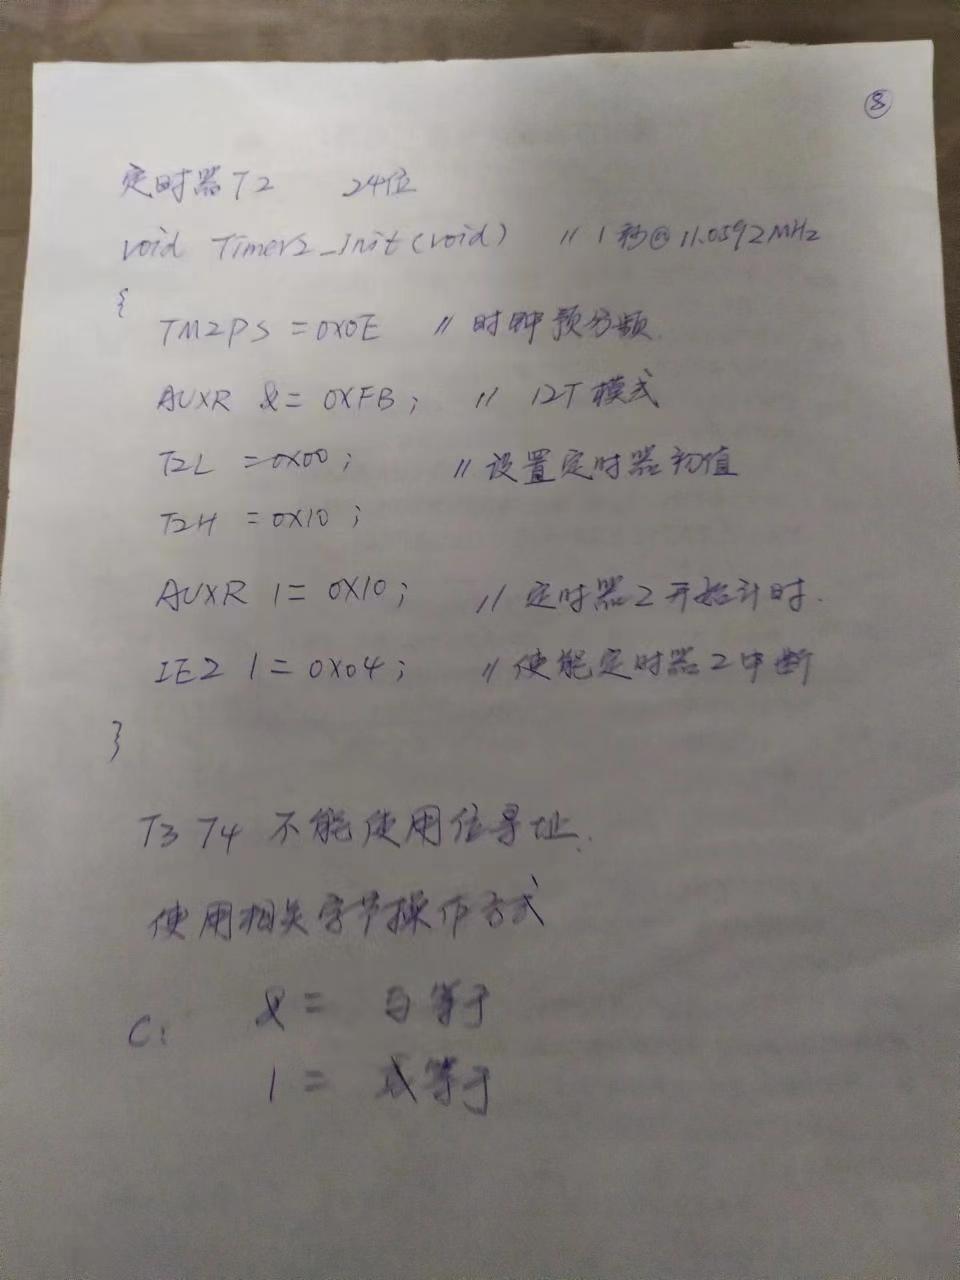 ⑧
定时器T2 24位
void Timer2_Init(void) // 1秒@11.0592MHz
{
TM2PS =0X0E // 时钟预分频.
AUXR &= 0XFB; // 12T模式
T2L =0X00; // 设置定时器初值
T2H =0X10;
AUXR |= 0X10; // 定时器2开始计时.
IE2 |= 0X04; // 使能定时器2中断
}
T3 T4 不能使用位寻址.
使用相关字节操作方式
C: &= 与等于
|= 或等于